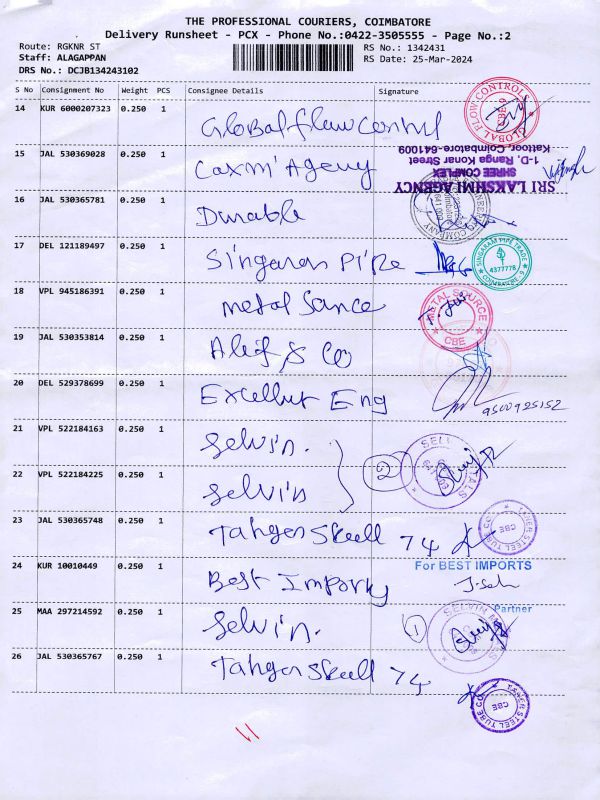 THE PROFESSIONAL COURIERS, COIMBATORE
Delivery Runsheet - PCX - Phone No.:0422-3505555 - Page No.:2
Route: RGKNR ST
Staff: ALAGAPPAN
DRS No.: DCJB134243102
RS No.: 1342431
RS Date: 25-Mar-2024
S No Consignment No Weight PCS Consignee Details Signature
14 KUR 6000207323 0.250 1 Global flow control
GLOBAL FLOW CONTROLS CBE-9
15 JAL 530369028 0.250 1 Laxmi Agency
SRI LAKSHMI AGENCY
SHREE COMPLEX
1-D, Ranga Konar Street
Kattoor, Coimbatore-641009
16 JAL 530365781 0.250 1 Durable
17 DEL 121189497 0.250 1 Singaram Pipe
SINGARAM PIPE TRADE 4377778 COIMBATORE - 9
18 VPL 945186391 0.250 1 metal Source
METAL SOURCE CBE
19 JAL 530353814 0.250 1 Alif & Co
20 DEL 529378699 0.250 1 Excellent Eng
9500925152
21 VPL 522184163 0.250 1 Selvin.
22 VPL 522184225 0.250 1 Selvin
2
SELVIN METALS
23 JAL 530365748 0.250 1 Tahgen Steell 74
STEEL TUBE CO. CBE
24 KUR 10010449 0.250 1 Best Imports
For BEST IMPORTS
Partner
25 MAA 297214592 0.250 1 Selvin.
1
SELVIN
26 JAL 530365767 0.250 1 Tahgen Steell 74
STEEL TUBE CO. CBE
11